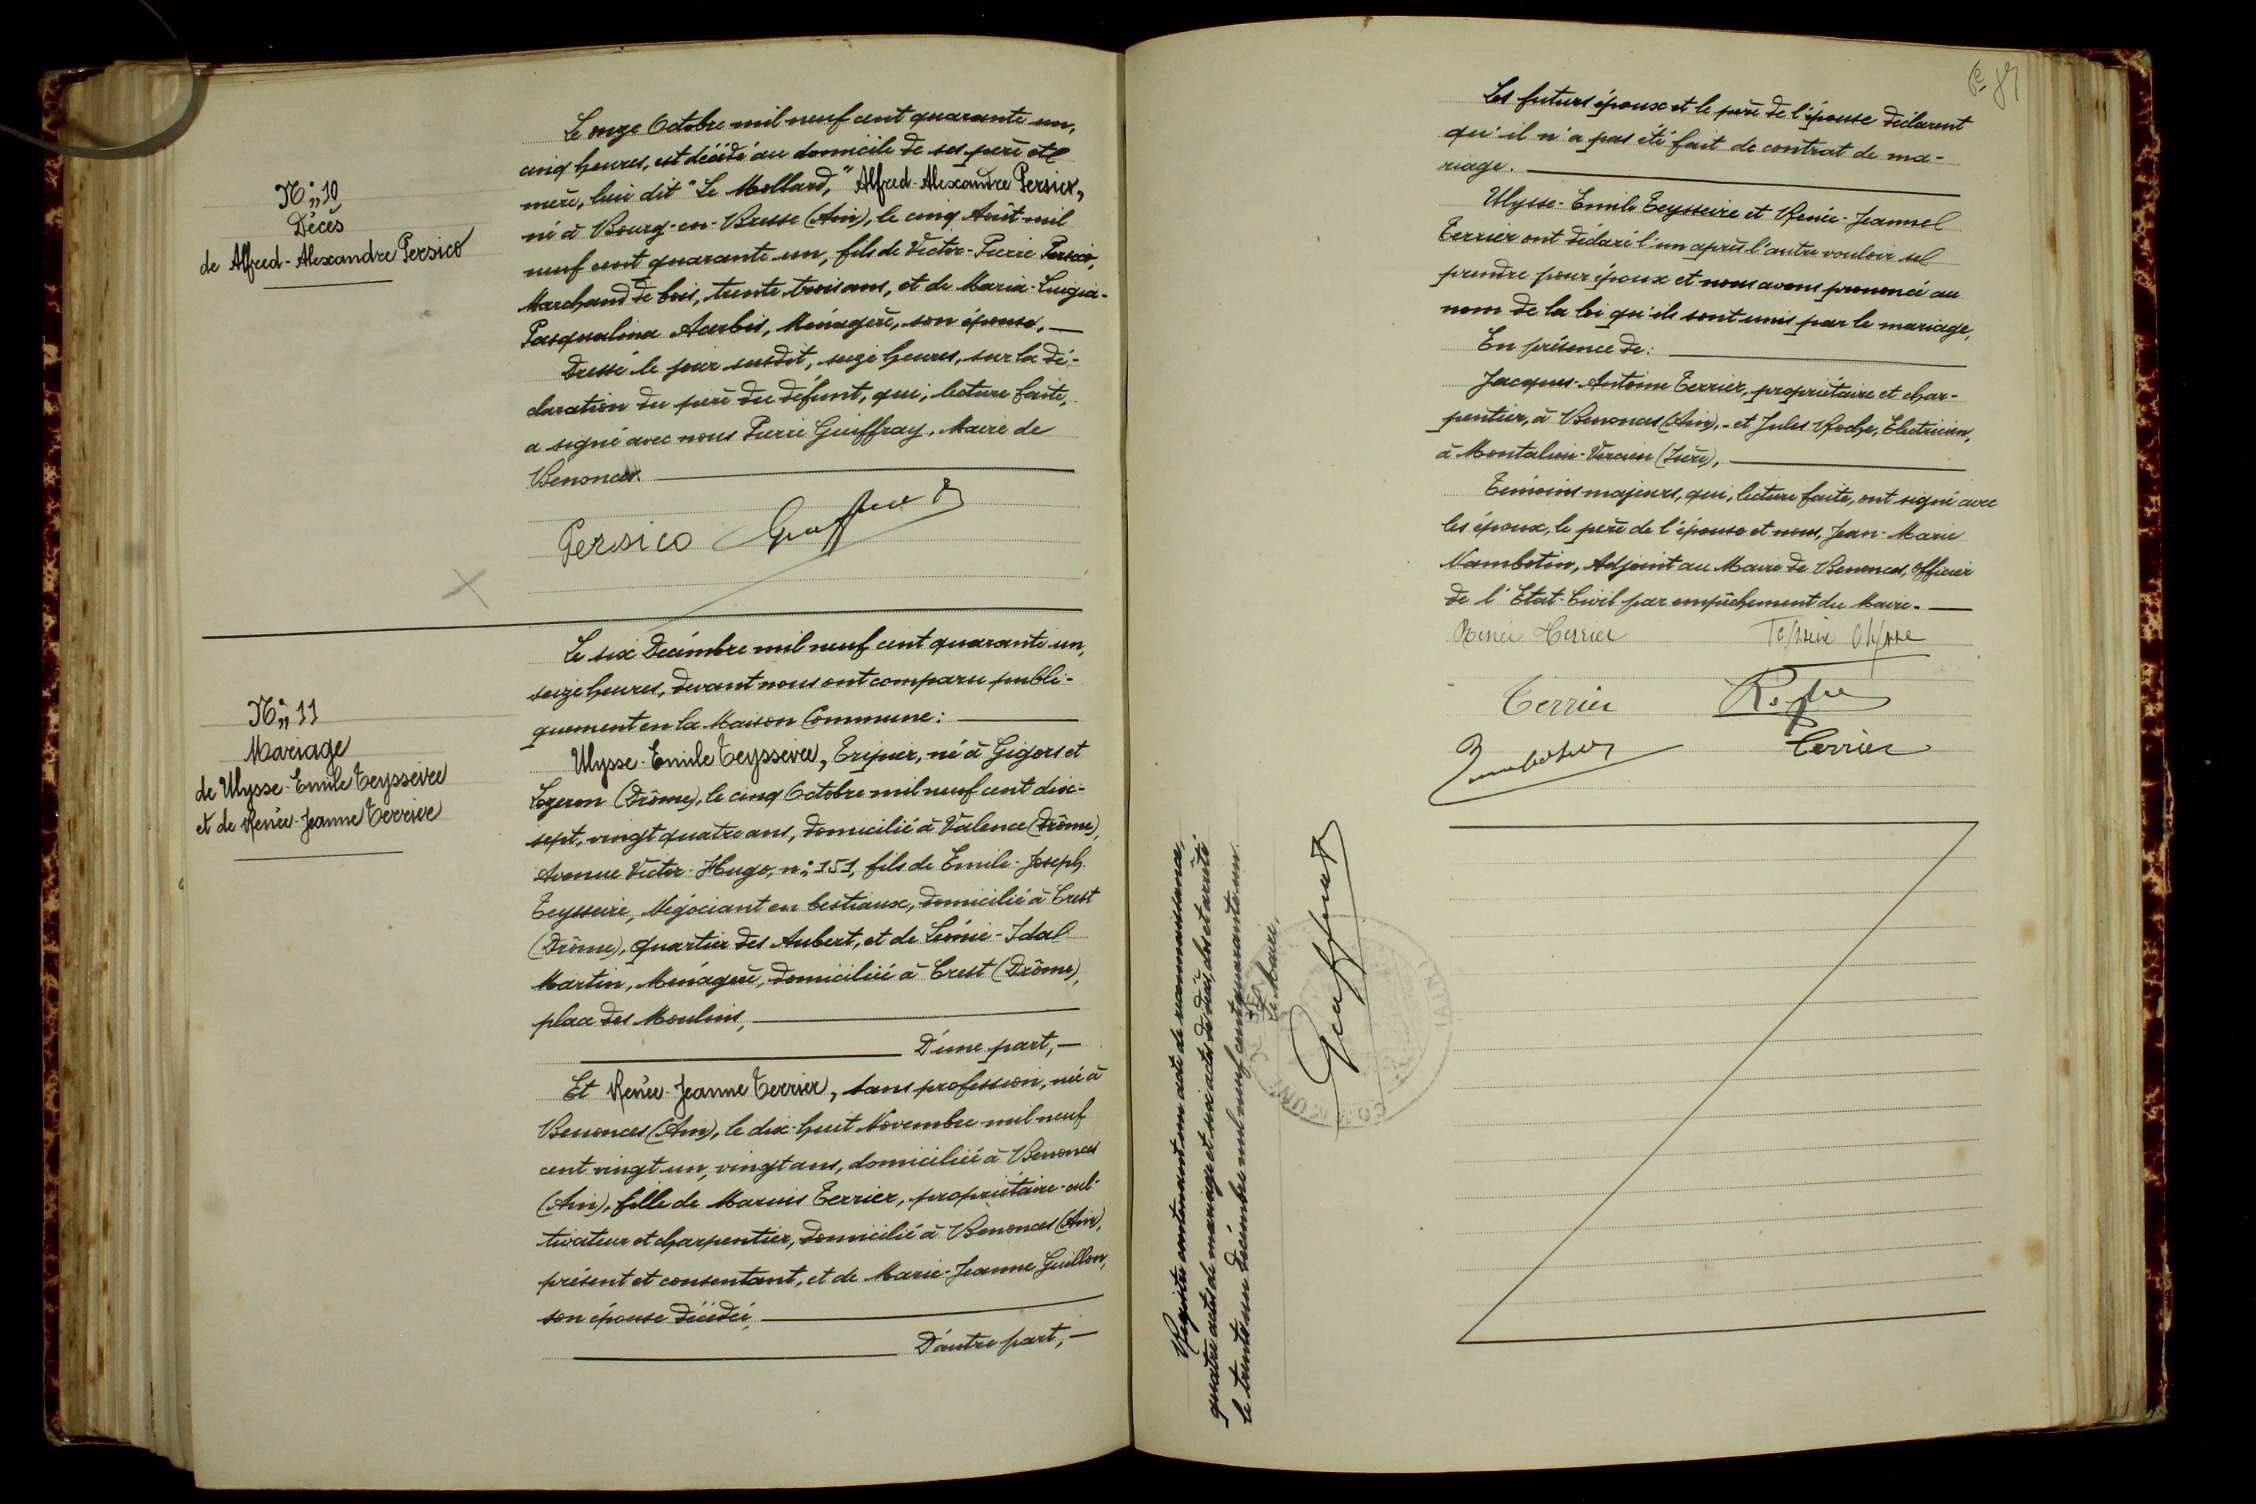 N° 10
Décès
de Alfred-Alexandre Persico
Le onze Octobre mil neuf cent quarante un,
cinq heures, est décédé au domicile de ses père et
mère, lieu dit "Le Mollard," Alfred-Alexandre Persico,
né à Bourg-en-Bresse (Ain), le cinq Août mil
neuf cent quarante un, fils de Victor-Pierre Persico,
Marchand de bois, trente trois ans, et de Maria-Luigia-
Pasqualina Acerbis, Ménagère, son épouse.
Dressé le jour susdit, seize heures, sur la dé-
claration du père du défunt, qui, lecture faite,
a signé avec nous Pierre Guiffray, Maire de
Benonces.
Persico Guiffray
N° 11
Mariage
de Ulysse-Emile Teysseire
et de Renée-Jeanne Terrier
Le six Décembre mil neuf cent quarante un,
seize heures, devant nous ont comparu publi-
quement en la Maison Commune:
Ulysse-Emile Teysseire, Tripier, né à Gigors et
Lozeron (Drôme), le cinq Octobre mil neuf cent dix-
sept, vingt quatre ans, domicilié à Valence (Drôme),
Avenue Victor-Hugo, n° 151, fils de Emile-Joseph
Teysseire, Négociant en bestiaux, domicilié à Crest
(Drôme), quartier des Aubert, et de Léonie-Ida
Martin, Ménagère, domiciliée à Crest (Drôme),
place des Moulins,
D'une part,
Et Renée-Jeanne Terrier, sans profession, née à
Benonces (Ain), le dix-huit Novembre mil neuf
cent vingt un, vingt ans, domiciliée à Benonces
(Ain), fille de Marius Terrier, propriétaire-cul-
tivateur et charpentier, domicilié à Benonces (Ain),
présent et consentant, et de Marie-Jeanne Guillon,
son épouse décédée,
D'autre part,
Les futurs époux et le père de l'épouse déclarent
qu'il n'a pas été fait de contrat de ma-
riage.
Ulysse-Emile Teysseire et Renée-Jeanne
Terrier ont déclaré l'un après l'autre vouloir se
prendre pour époux et nous avons prononcé au
nom de la loi qu'ils sont unis par le mariage,
En présence de:
Jacques-Antoine Terrier, propriétaire et char-
pentier, à Benonces (Ain),- et Jules Roche, Electricien,
à Montalieu-Vercieu (Isère),
Témoins majeurs, qui, lecture faite, ont signé avec
les époux, le père de l'épouse et nous, Jean-Marie
Nambotin, Adjoint au Maire de Benonces, Officier
de l'Etat-Civil par empêchement du Maire.
Renée Terrier Teysseire Ulysse
Terrier Roche
Nambotin Terrier
Registre contenant un acte de reconnaissance,
quatre actes de mariage et six actes de décès, clos et arrêté
le trente un Décembre mil neuf cent quarante un.
Le Maire,
Guiffray
COMMUNE
(AIN)